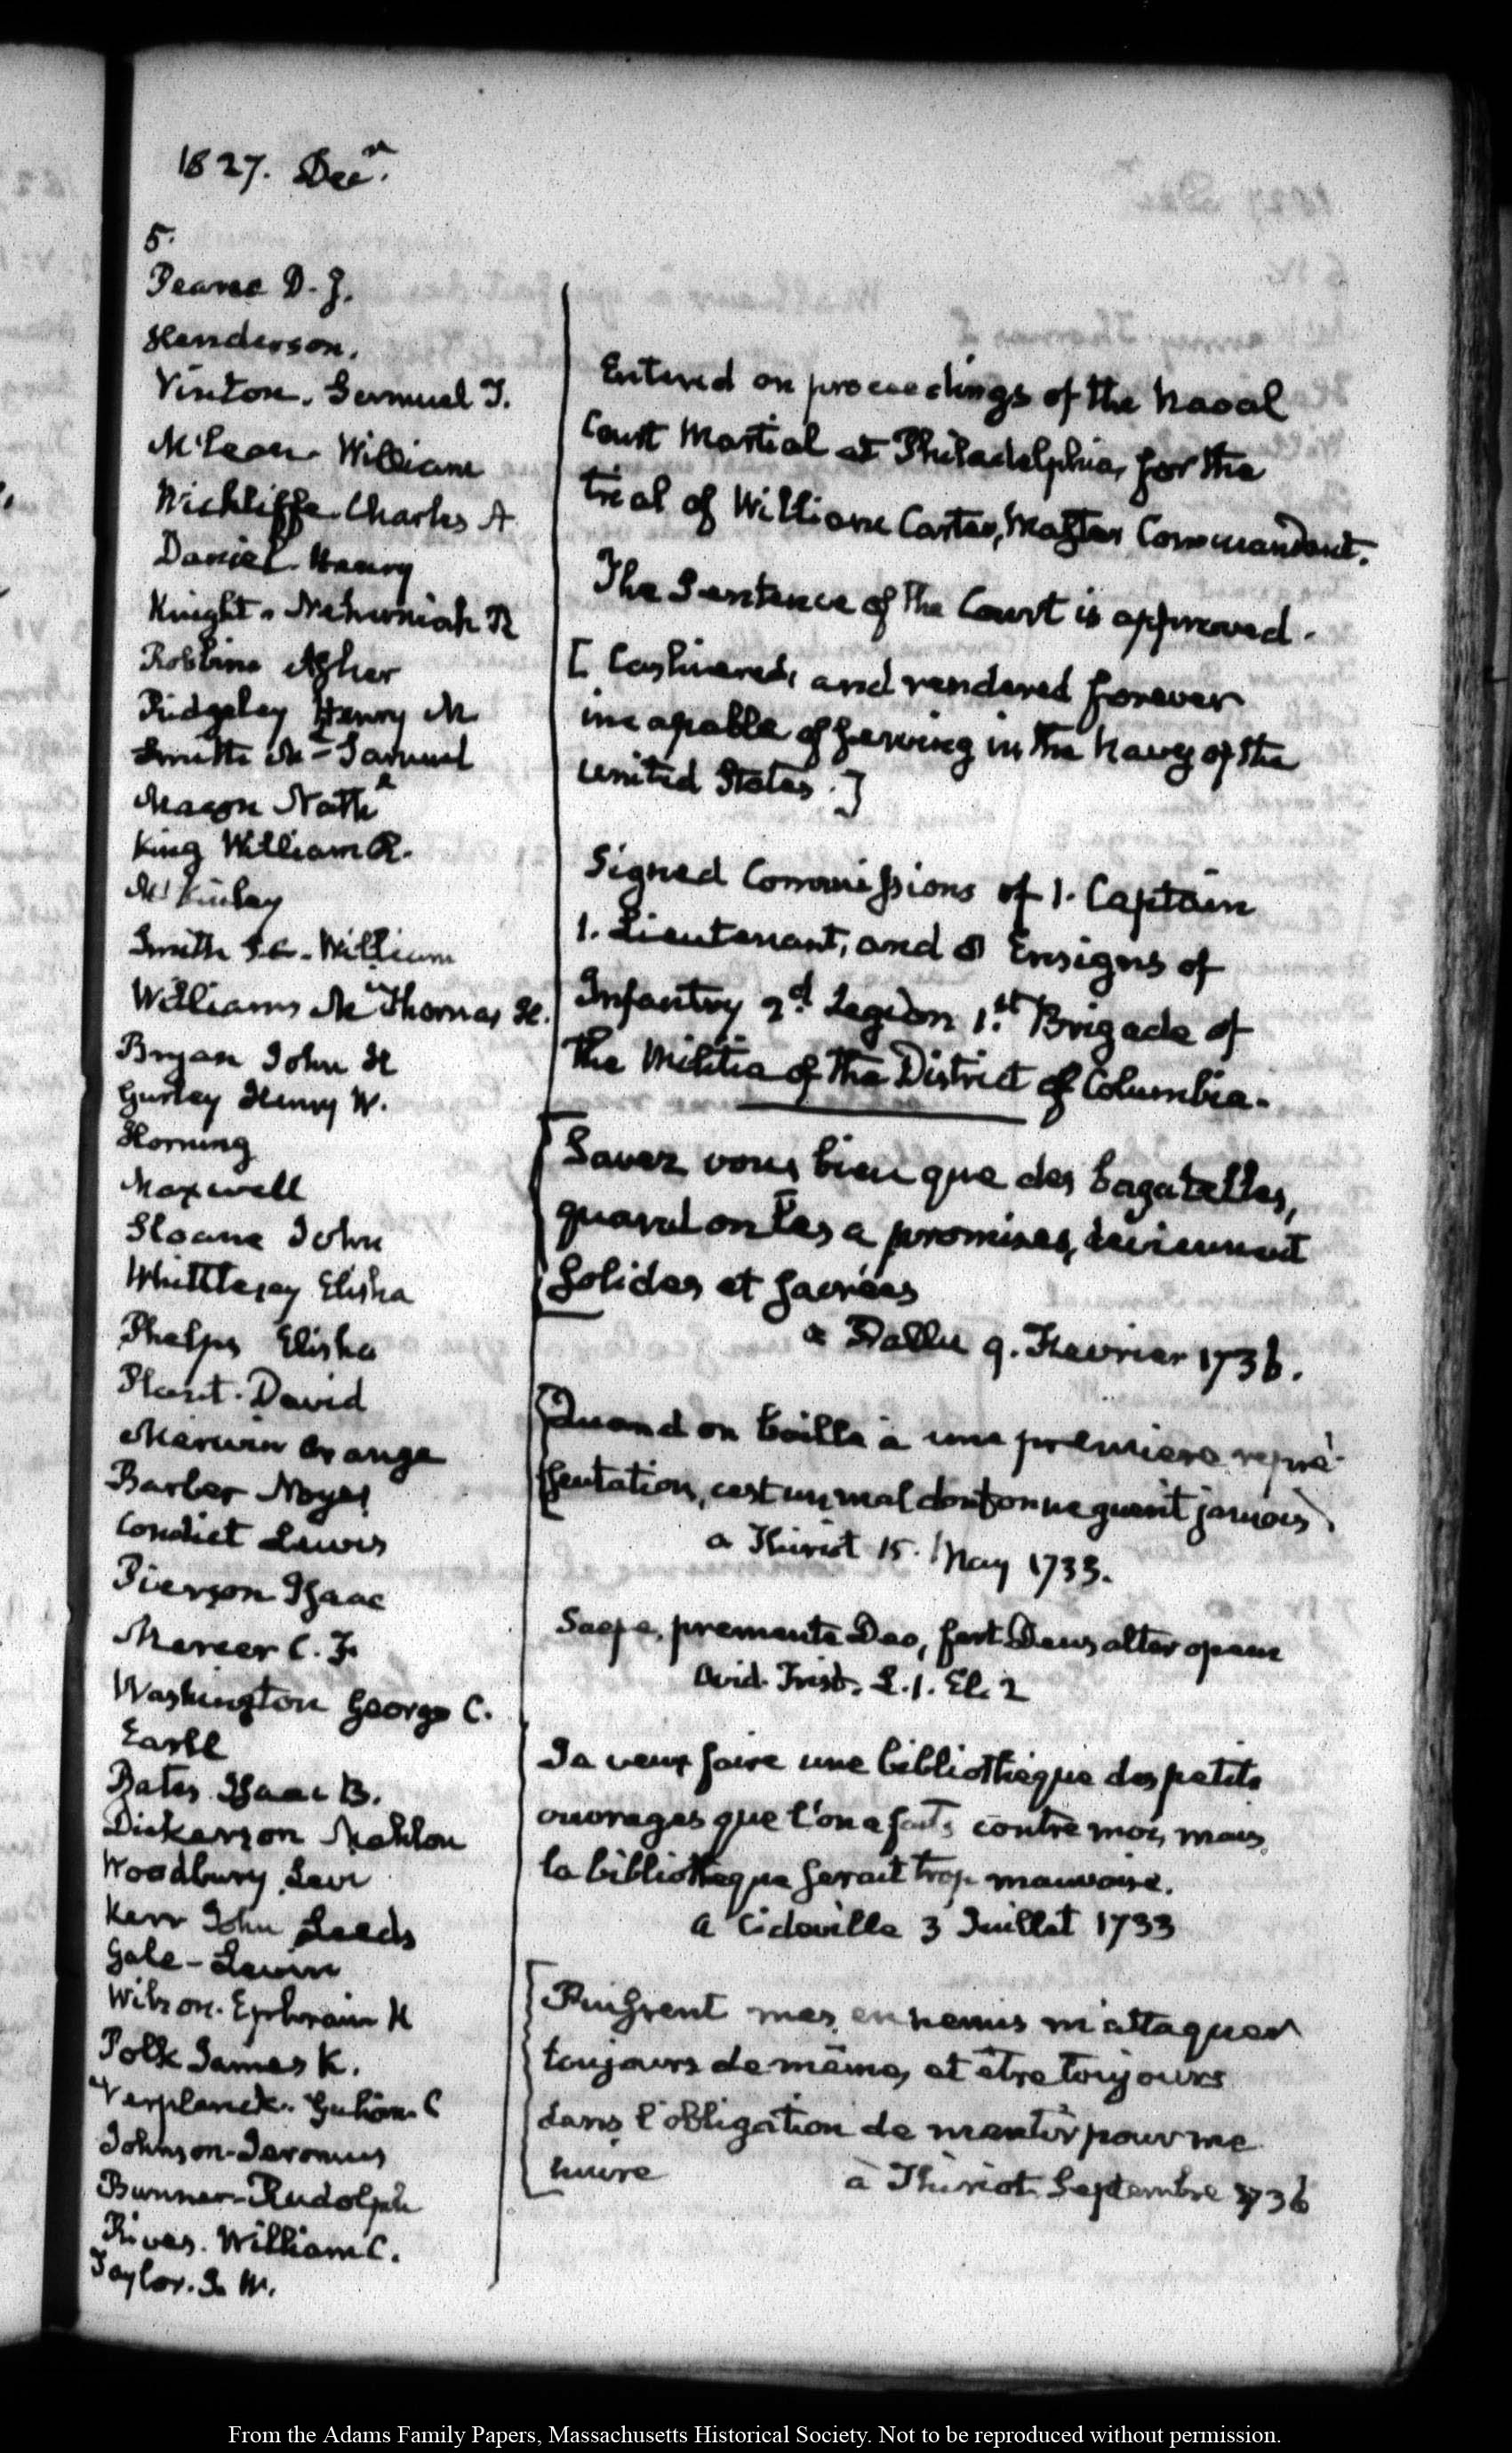 1827. Decr.
5.
Pearce D. J.
Henderson.
Vinton. Samuel F.
McLean William
Wickliffe Charles A
Daniel Henry
Knight. Nehemiah R
Robbins Asher
Ridgeley Henry M.
Smith Md- Samuel
Macon Nathl
King William R.
McKinley
Smith S.C. William
Williams Mi Thomas H.
Bryan John H
Gurley Henry W.
Horning
Maxwell
Sloane John
Whittlesey Elisha
Phelps Elisha
Plant. David
Merwin Orange
Barber Noyes
Condict Lewis
Pierson Isaac
Mercer C. F.
Washington George C.
Earll
Bates Isaac B.
Dickerson Mahlon
Woodbury Levi
Kerr John Leeds
Gale- Levin
Wilson. Ephraim K
Polk James K.
Verplanck. Gulian C
Johnson- Jeromus
Bunner- Rudolph
Rives. William C.
Taylor. J. W.
Entered on proceedings of the Naval
Court Martial at Philadelphia, for the
trial of William Carter, Master Commandant.
The Sentence of the Court is approved.
[Cashiered, and rendered forever
incapable of serving in the Navy of the
United States.]
Signed Commissions of 1. Captain
1. Lieutenant, and Ensigns of
Infantry 2d. Legion 1st. Brigade of
the Militia of the District of Columbia.
Savez vous bien que des bagatelles,
quand on les a promises, deviennent
solides et sacrées
a 9. Fevrier 1736.
Quand on baille à une premiere repré-
sentation, cest un mal dont on ne guerit jamais.
a Thiriot 15. May 1733.
Saepe, premente Deo, fert Deus alter opem
Ovid. Trist. L. 1. El. 2
Je veux faire une bibliothèque des petits
ouvrages que l'on a faits contre moi, mais
la bibliothèque serait trop mauvaise.
a Cideville 3 Juillet 1733
Puissent mes ennemis m'attaquer
toujours de même, et être toujours
dans l'obligation de mentir pour me
nuire à Thiriot Septembre 1736
From the Adams Family Papers, Massachusetts Historical Society. Not to be reproduced without permission.